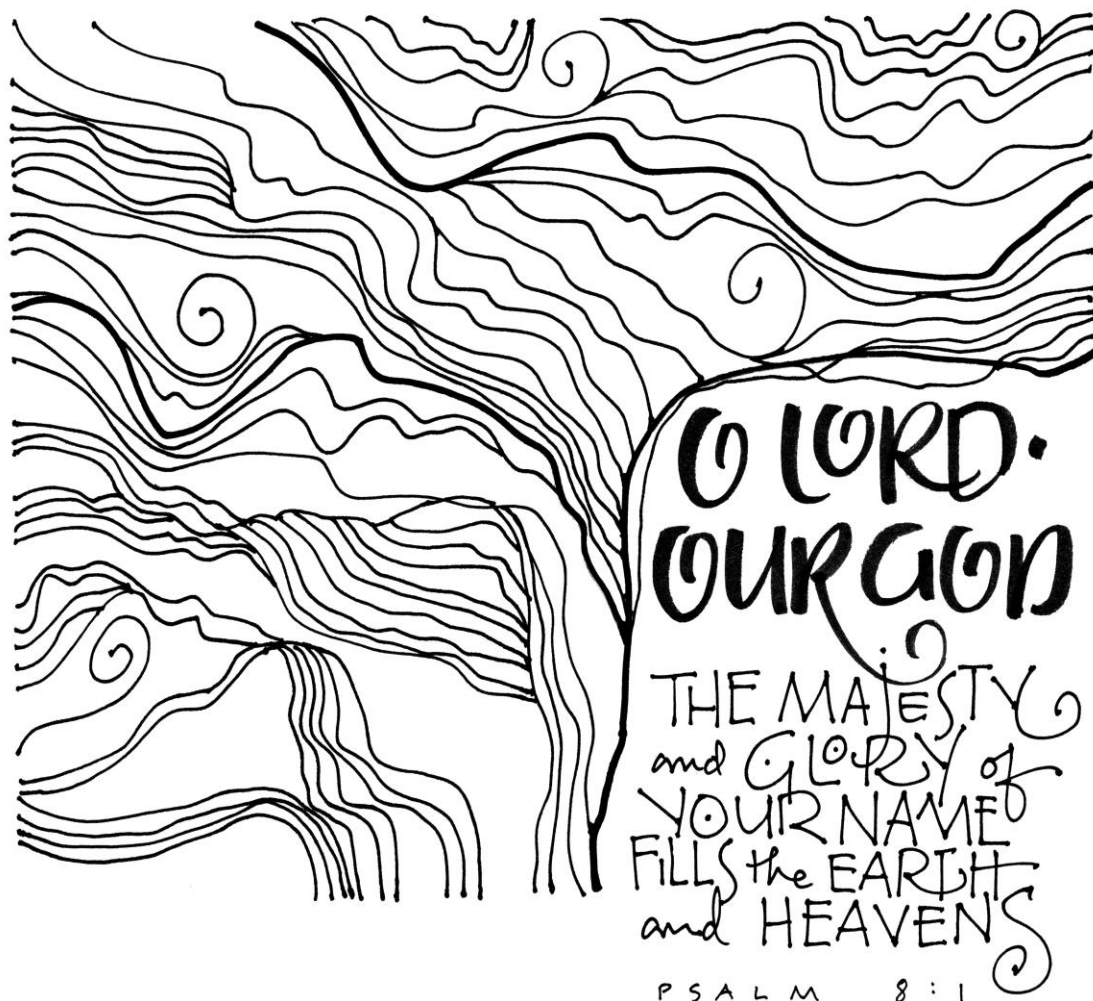 O LORD.
OUR GOD
THE MAJESTY
and GLORY of
YOUR NAME
FILLS the EARTH
and HEAVENS
PSALM 8:1